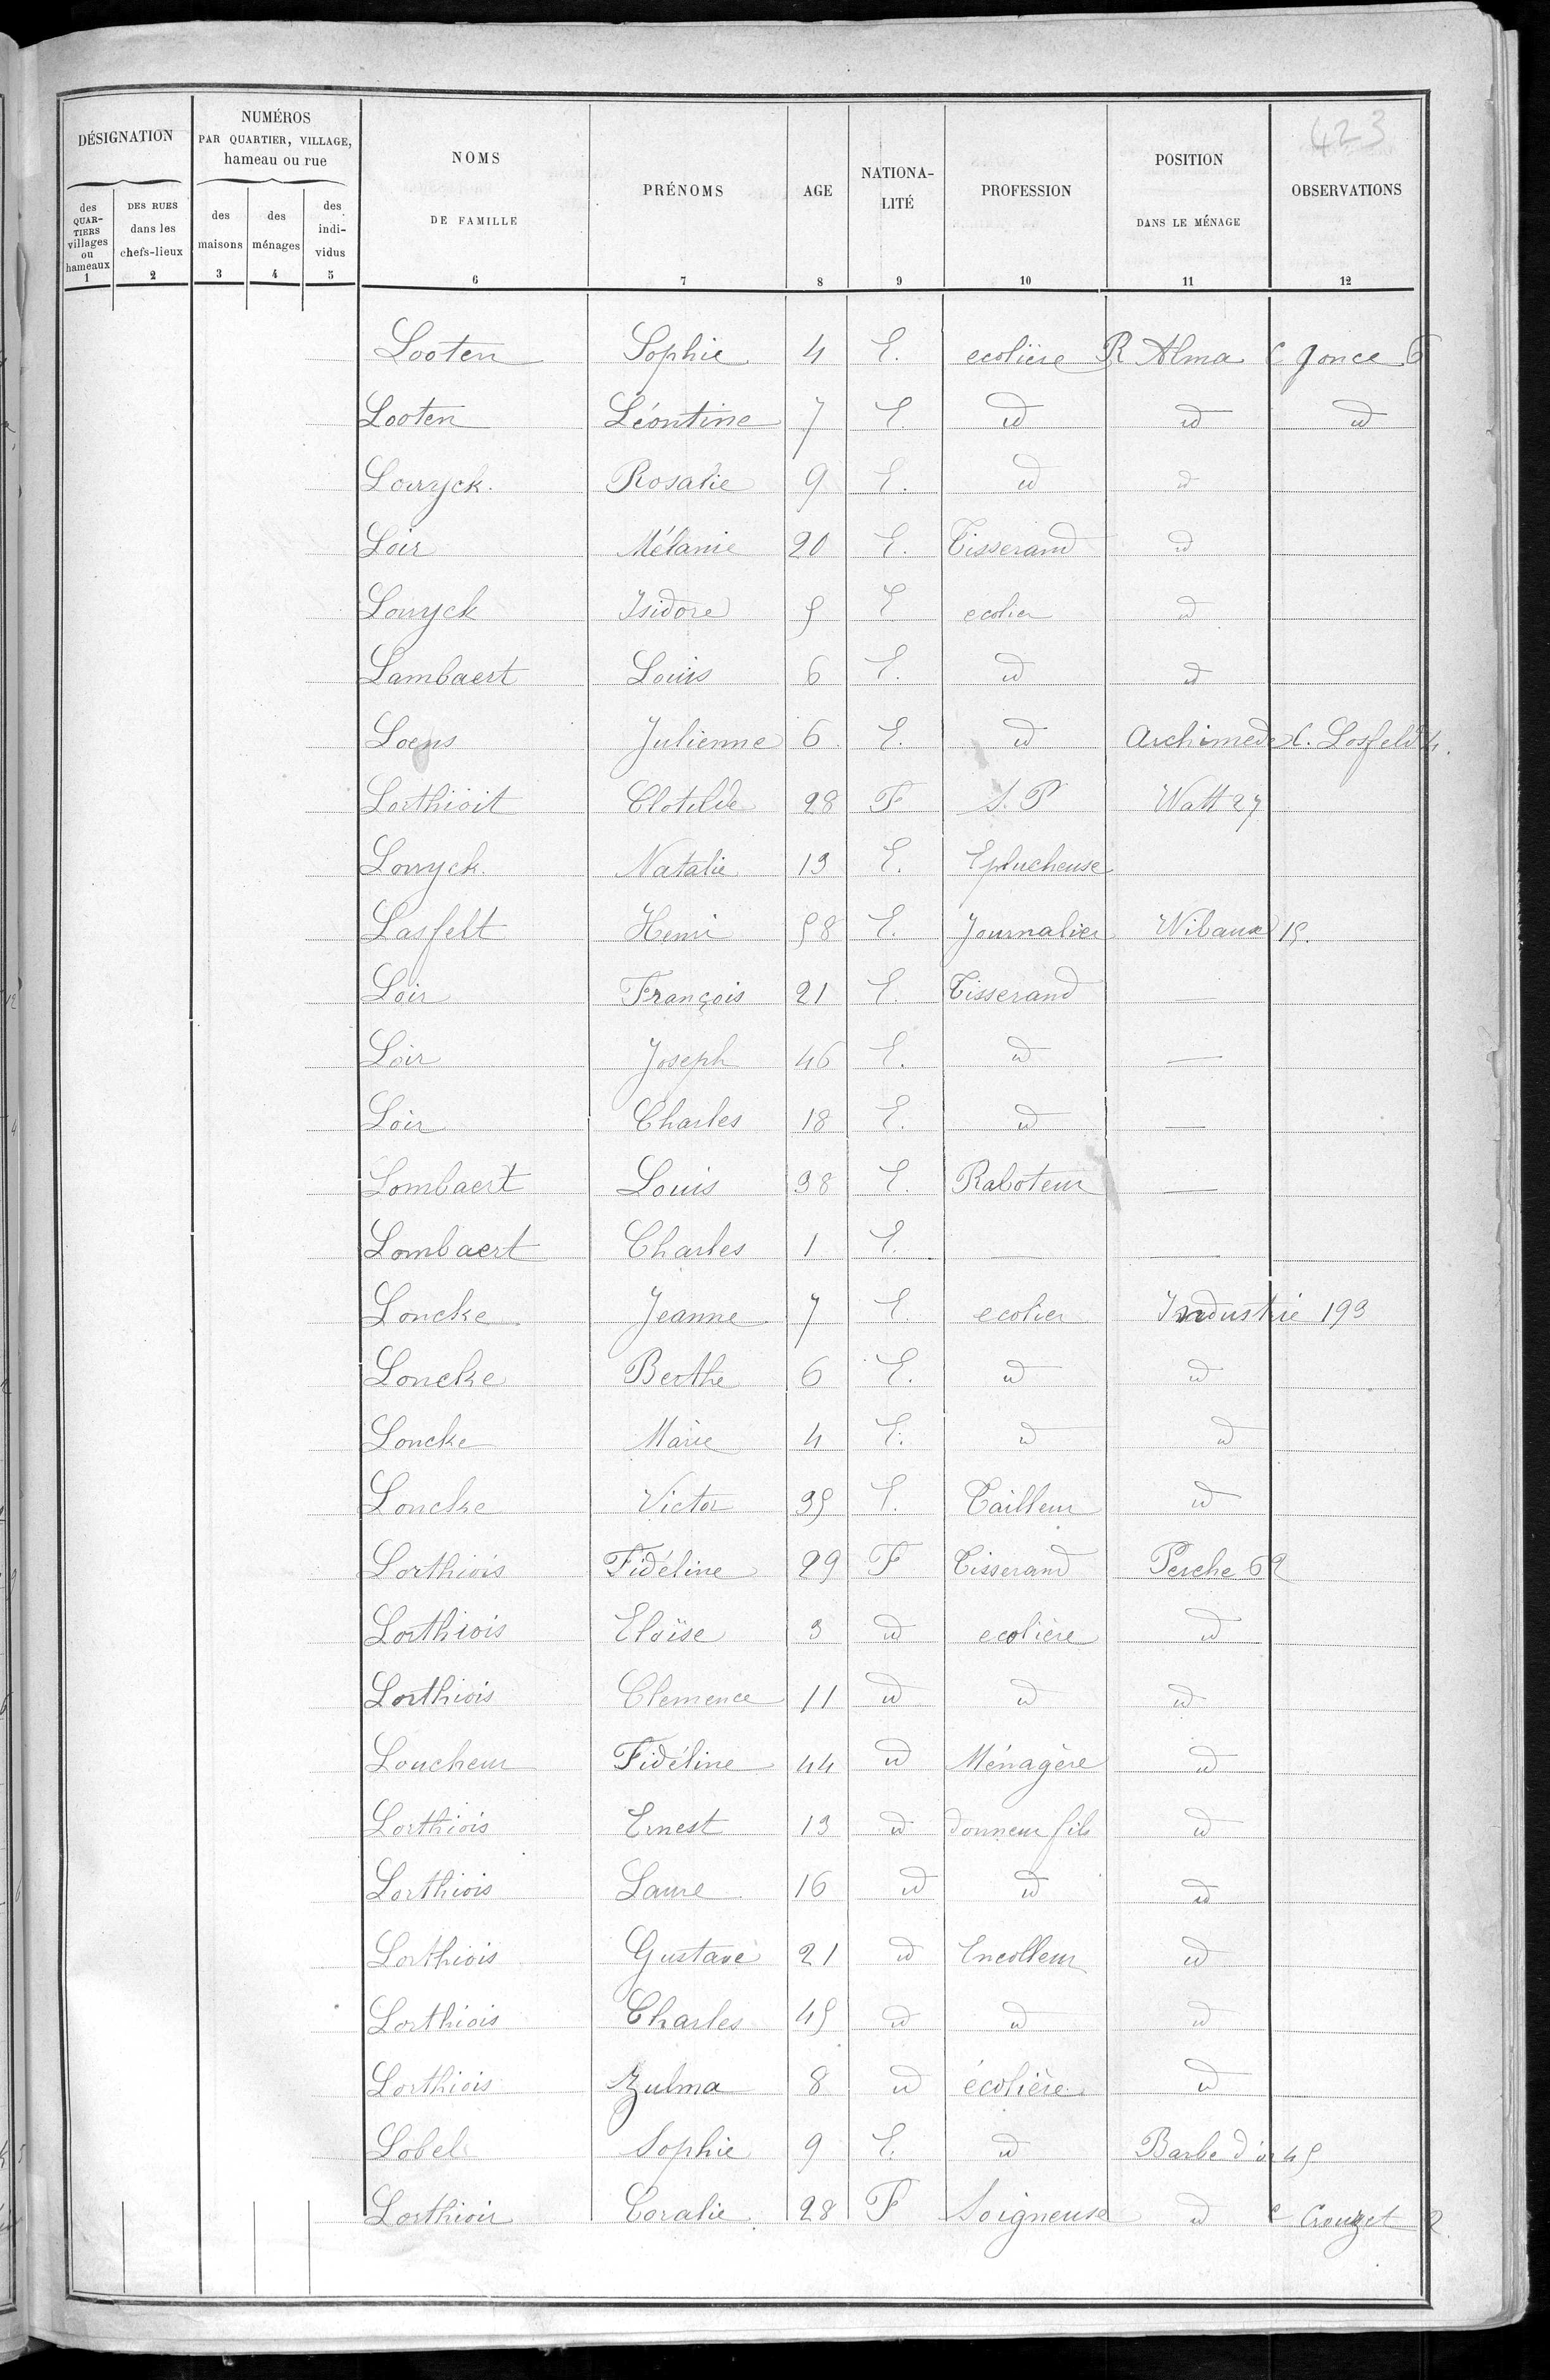 423
DÉSIGNATION
des QUARTIERS villages ou hameaux
1
DES RUES dans les chefs-lieux
2
NUMÉROS
PAR QUARTIER, VILLAGE,
hameau ou rue
des maisons
3
des ménages
4
des individus
5
NOMS
DE FAMILLE
6
PRÉNOMS
7
AGE
8
NATIONALITÉ
9
PROFESSION
10
POSITION
DANS LE MÉNAGE
11
OBSERVATIONS
12
Looten Sophie 4 E. ecolière R Alma C Jonce 6
Looten Léontine 7 E. id id id
Lowyck. Rosalie 9 E. id id
Loir Mélanie 20 E. Tisserand id
Lowyck Isidore 5 E ecolier id
Lambaert Louis 6 E. id id
Loens Julienne 6 E. id Archimède C. Losfeld 4.
Lorthioit Clotilde 28 F S. P Watt 27
Lowyck. Natalie 13 E. Eplucheuse
Lasfelt Henri 58 E. Journalier Wibaux 15.
Loir François 21 E. Tisserand —
Loir Joseph 46 E. id —
Loir Charles 18 E. id —
Lombaert Louis 38 E. Raboteur —
Lombaert Charles 1 E. — —
Loncke Jeanne 7 E. ecolier Industrie 193
Loncke Berthe 6 E. id id
Loncke Marie 4 E. id id
Loncke Victor 35 E. Tailleur id
Lorthiois Fidéline 29 F Tisserand Perche 62
Lorthiois Eloïse 3 id ecolière id
Lorthiois Clemence 11 id id id
Loucheur Fidéline 44 id Ménagère id
Lorthiois Ernest 13 id donneur fils id
Lorthiois Laure 16 id id id
Lorthiois Gustave 21 id Encolleur id
Lorthiois Charles 45 id id id
Lorthiois Zulma 8 id écolière id
Lobel Sophie 9 E. id Barbe d'or 45
Lorthioir Coralie 28 F Soigneuse id C Crouzet 2